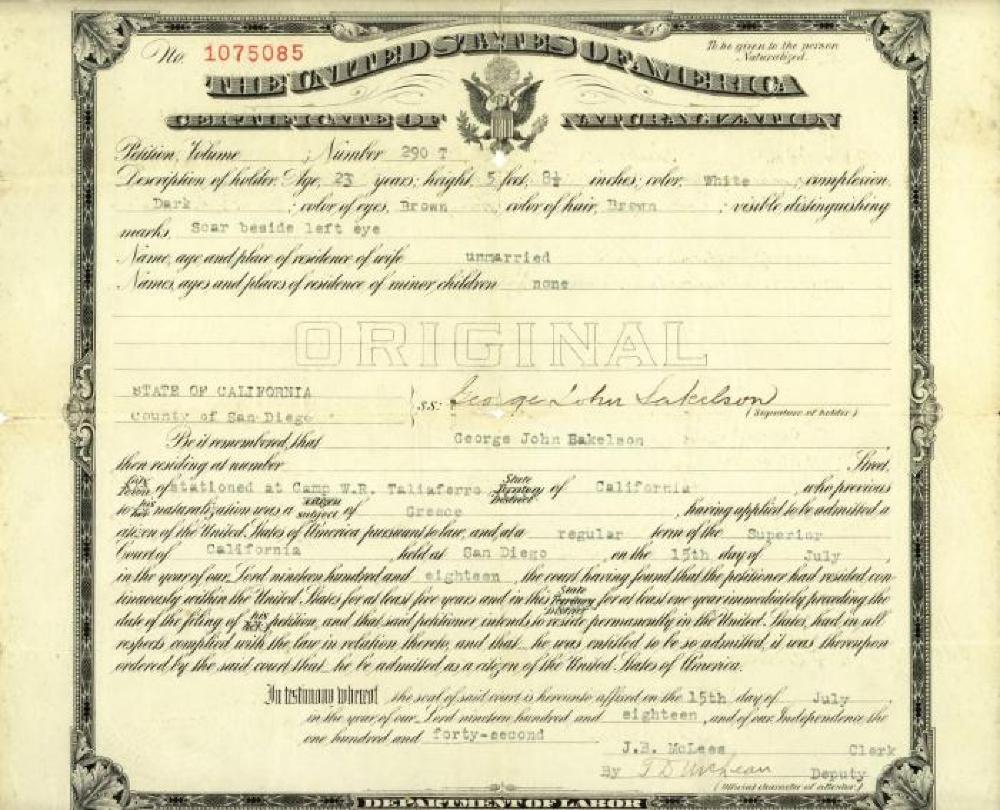 No. 1075085
To be given to the person
Naturalized.
THE UNITED STATES OF AMERICA
CERTIFICATE OF NATURALIZATION
Petition, Volume ; Number 290 T
Description of holder: Age, 23 years; height, 5 feet, 8½ inches; color, White ; complexion,
Dark ; color of eyes, Brown ; color of hair, Brown ; visible distinguishing
marks, Scar beside left eye
Name, age and place of residence of wife unmarried
Names, ages and places of residence of minor children none
ORIGINAL
STATE OF CALIFORNIA
County of San Diego } s.s.: George John Sakelson
(Signature of holder)
Be it remembered, that George John Sakelson
then residing at number Street,
City Town of stationed at Camp W.R. Taliaferro State Territory District of California , who previous
to his her naturalization was a citizen subject of Greece , having applied to be admitted a
citizen of the United States of America pursuant to law, and at a regular term of the Superior
Court of California held at San Diego on the 15th day of July
in the year of our Lord nineteen hundred and eighteen , the court having found that the petitioner had resided con-
tinuously within the United States for at least five years and in this State Territory District for at least one year immediately preceding the
date of the filing of his her petition, and that said petitioner intends to reside permanently in the United States, had in all
respects complied with the law in relation thereto, and that he was entitled to be so admitted, it was thereupon
ordered by the said court that he be admitted as a citizen of the United States of America.
In testimony whereof the seal of said court is hereunto affixed on the 15th day of July
in the year of our Lord nineteen hundred and eighteen , and of our Independence the
one hundred and forty-second
J.B. McLees Clerk
By Deputy
(Official character of attestor)
DEPARTMENT OF LABOR